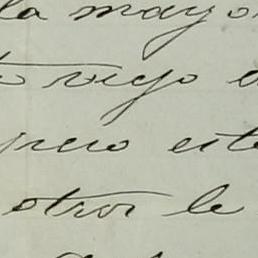 la mayo
viejo
pero este
otros le